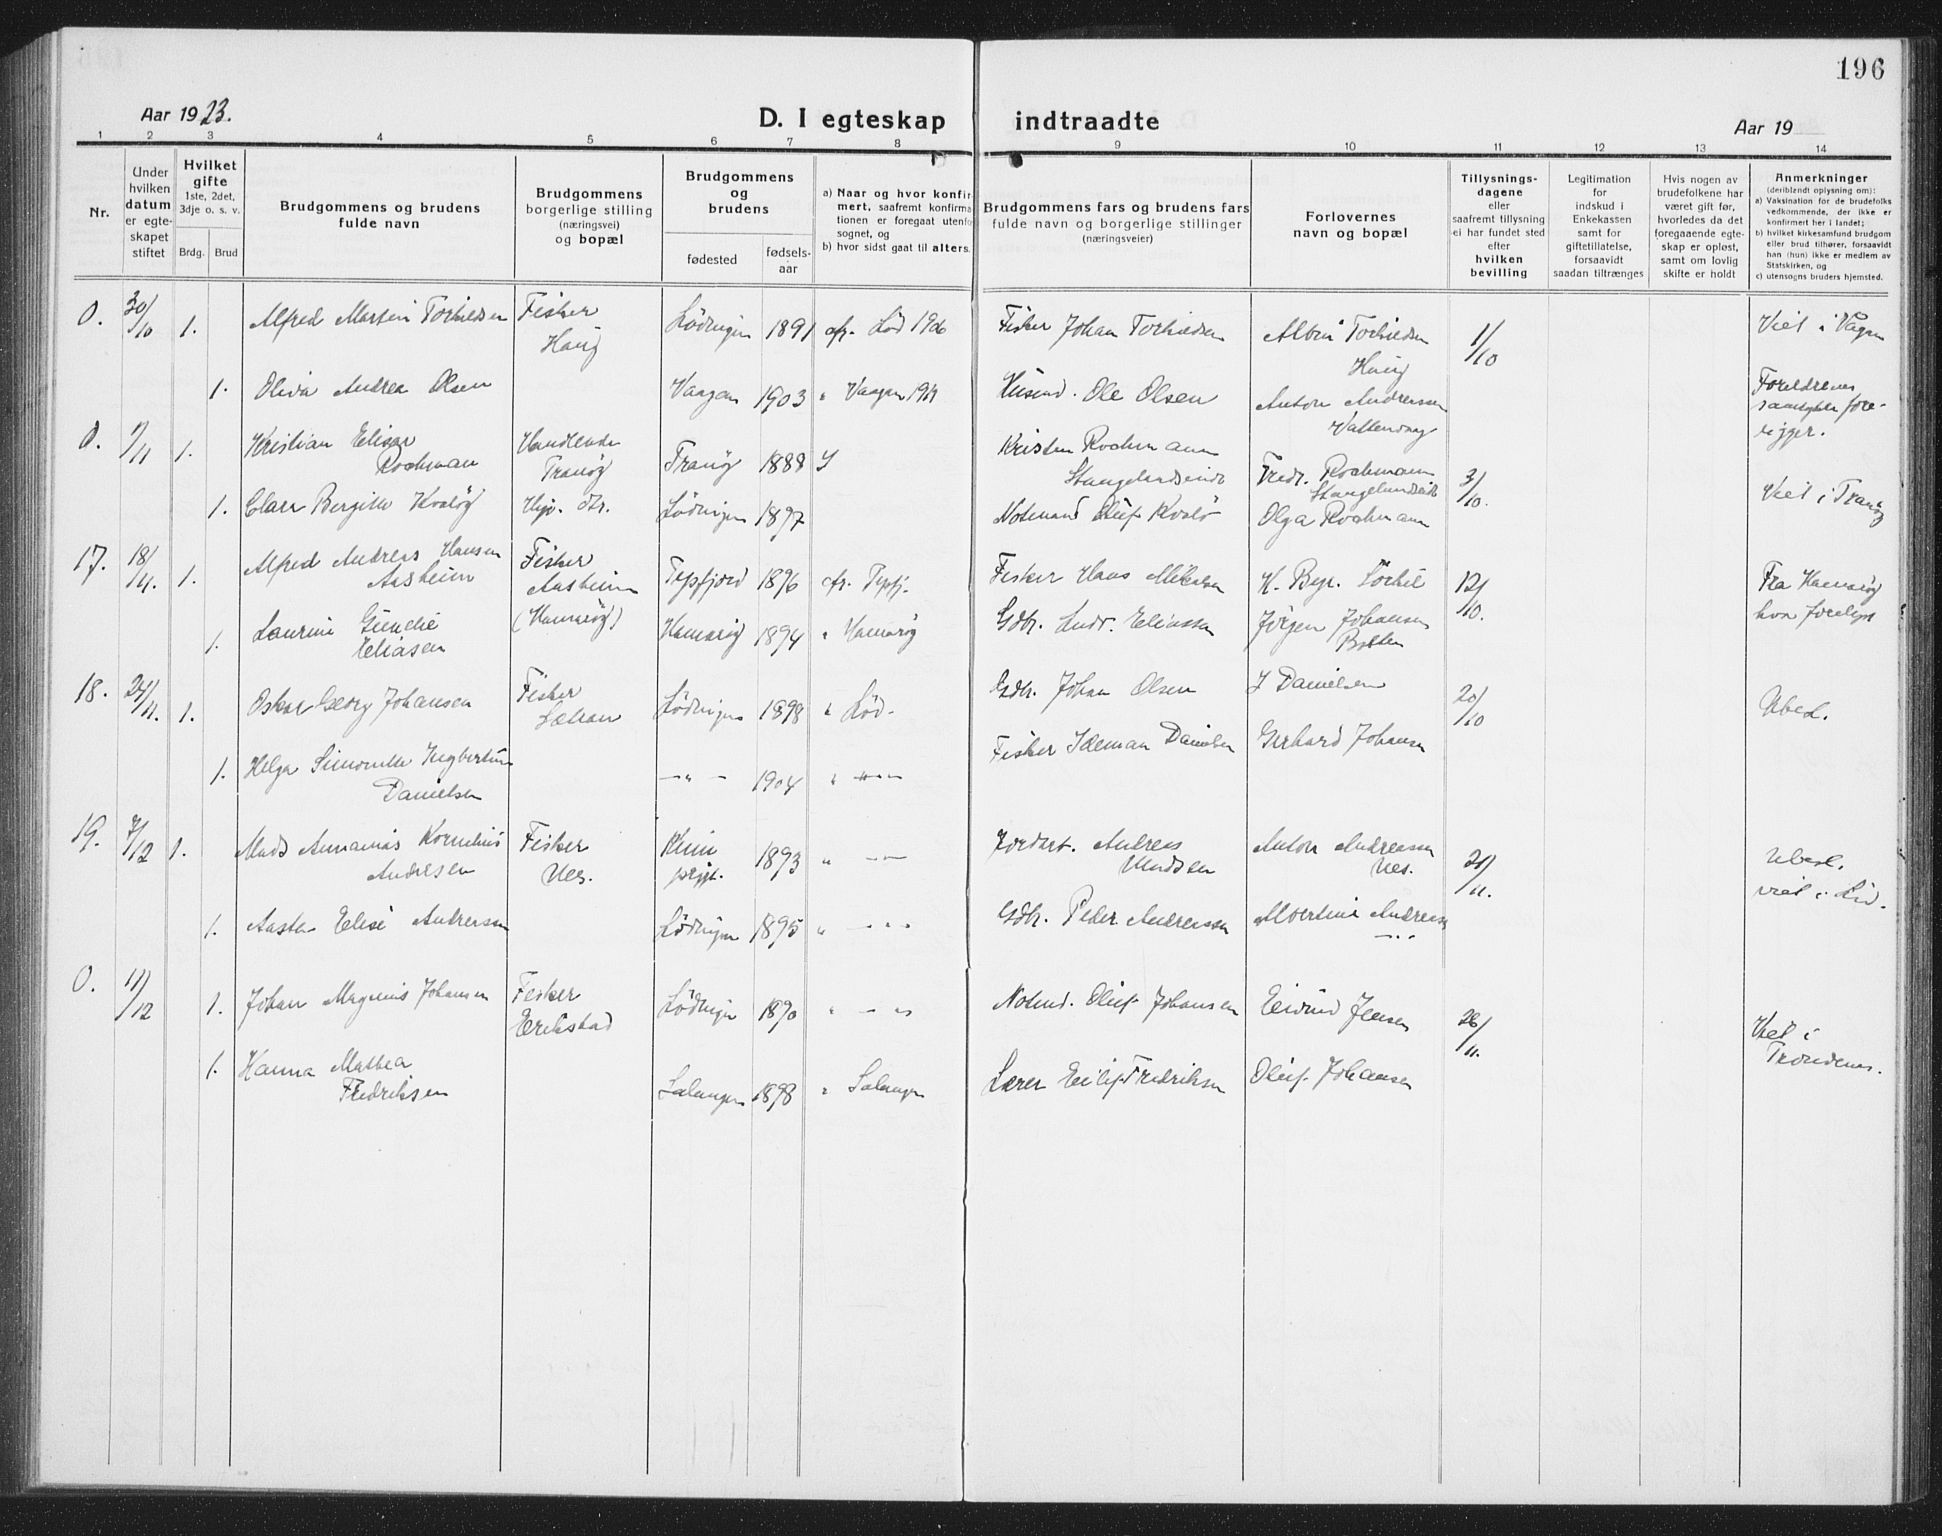 196
Aar 1923.
D. I egteskap indtraadte
Aar 19
1 2 3 4 5 6 7 8 9 10 11 12 13 14
Nr.
Under
hvilken
datum
er egte-
skapet
stiftet
Hvilket
gifte
1ste, 2det,
3dje o. s. v.
Brdg. Brud
Brudgommens og brudens
fulde navn
Brudgommens
borgerlige stilling
(næringsvei)
og bopæl
Brudgommens
og
brudens
fødested
fødsels-
aar
a) Naar og hvor konfir-
mert, saafremt konfirma-
tionen er foregaat utenfor
sognet, og
b) hvor sidst gaat til alters.
Brudgommens fars og brudens fars
fulde navn og borgerlige stillinger
(næringsveier)
Forlovernes
navn og bopæl
Tillysnings-
dagene
eller
saafremt tillysning
ei har fundet sted
efter
hvilken
bevilling
Legitimation
for
indskud i
Enkekassen
samt for
giftetillatelse,
forsaavidt
saadan tiltrænges
Hvis nogen av
brudefolkene har
været gift før,
hvorledes da det
foregaaende egte-
skap er opløst,
samt om lovlig
skifte er holdt
Anmerkninger
(deriblandt oplysning om):
a) Vaksination for de brudefolks
vedkommende, der ikke er
konfirmert her i landet;
b) hvilket kirkesamfund brudgom
eller brud tilhører, forsaavidt
han (hun) ikke er medlem av
Statskirken, og
c) utensogns bruders hjemsted.
0. 30/10 1. Alfred Martin Torkildsen Fisker Lödingen 1891 Löd 1906 Fisker Johan Torkildsen Albin Torkildsen 1/10 Viet i Vågan
Haug Haug
1. Olivia Andrea Olsen Vaagan 1903 " Vaagan Husmd. Ole Olsen Anton Andreassen Foreldrenes
samtykke fore-
ligger.
0. /11 1. Kristian Elisar Handlende Tranöy 1888 Kristen Rochmann Fredr. Rochmann 3/10.
Rochman Tranöy Stangelandseide Stangelandseide
1. Clara Bergitte Kvalöy Lödingen 1897 Notmand Oluf Kvalö Olga Rochmann Viet i Tranöy
17. 18/11. 1. Alfred Andreas Hansen Fisker 1896 Fisker Hans Mikalsen K. Sörkil 12/10. Fra Hamaröy
Aasheim Aasheim
(Hamaröy)
1. Laurine Elisasen Hamaröy 1894 " Hamaröy Gdbr. Andr. Eliassen Jörgen Johansen
18. 24/11. 1. Oskar Georg Johansen Fisker Lödingen 1898 " Löd. Gdbr. Johan Olsen J Danielsen 20/10 Ubesl.
1. Helga Simonette Ingbertine — " — 1904 " — " — Fisker Idemar Danielsen Gerhard Johansen
Danielsen
19. 7/12 1. Mads Annanias Kornelius Fisker 1893 " — " — Jordart. Andreas Anton Andreassen /11. Ubesl.
Andresen Nes. Madsen Nes. viet i Löd.
1. Aasta Elise Andreassen Lödingen 1895 " — " — Gdbr. Peder Andreassen Albertine Andreassen
0. 11/12 1. Johan Magnus Johansen Fisker Lödingen 1890 " — " — Notmd. Oluf Johansen Eivind Jensen 26/11. Viet i
Erikstad Trondenes.
1. Hanna Mathea Salangen 1898 " Salangen Lærer Eilif Fredriksen Oluf Johansen
Fredriksen